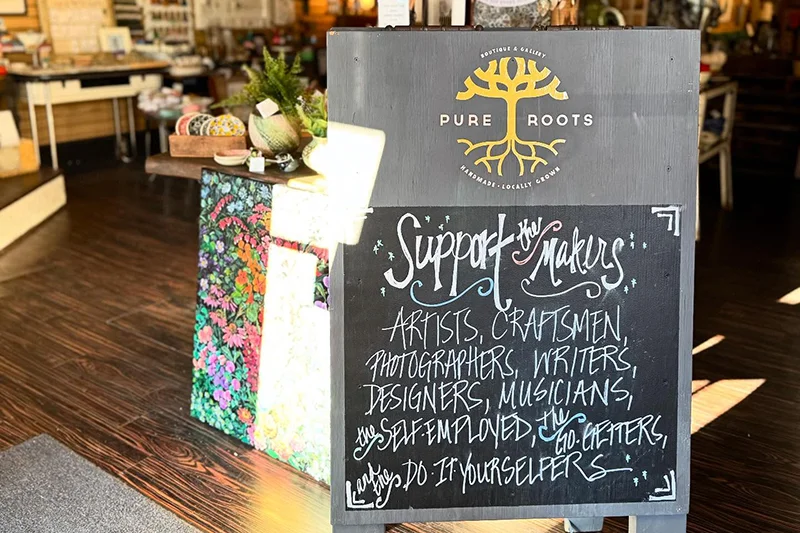 BOUTIQUE & GALLERY
PURE ROOTS
HANDMADE • LOCALLY GROWN
Support the Makers
ARTISTS, CRAFTSMEN,
PHOTOGRAPHERS, WRITERS,
DESIGNERS, MUSICIANS,
the SELF-EMPLOYED, the GO-GETTERS,
and the DO-IT-YOURSELFERS